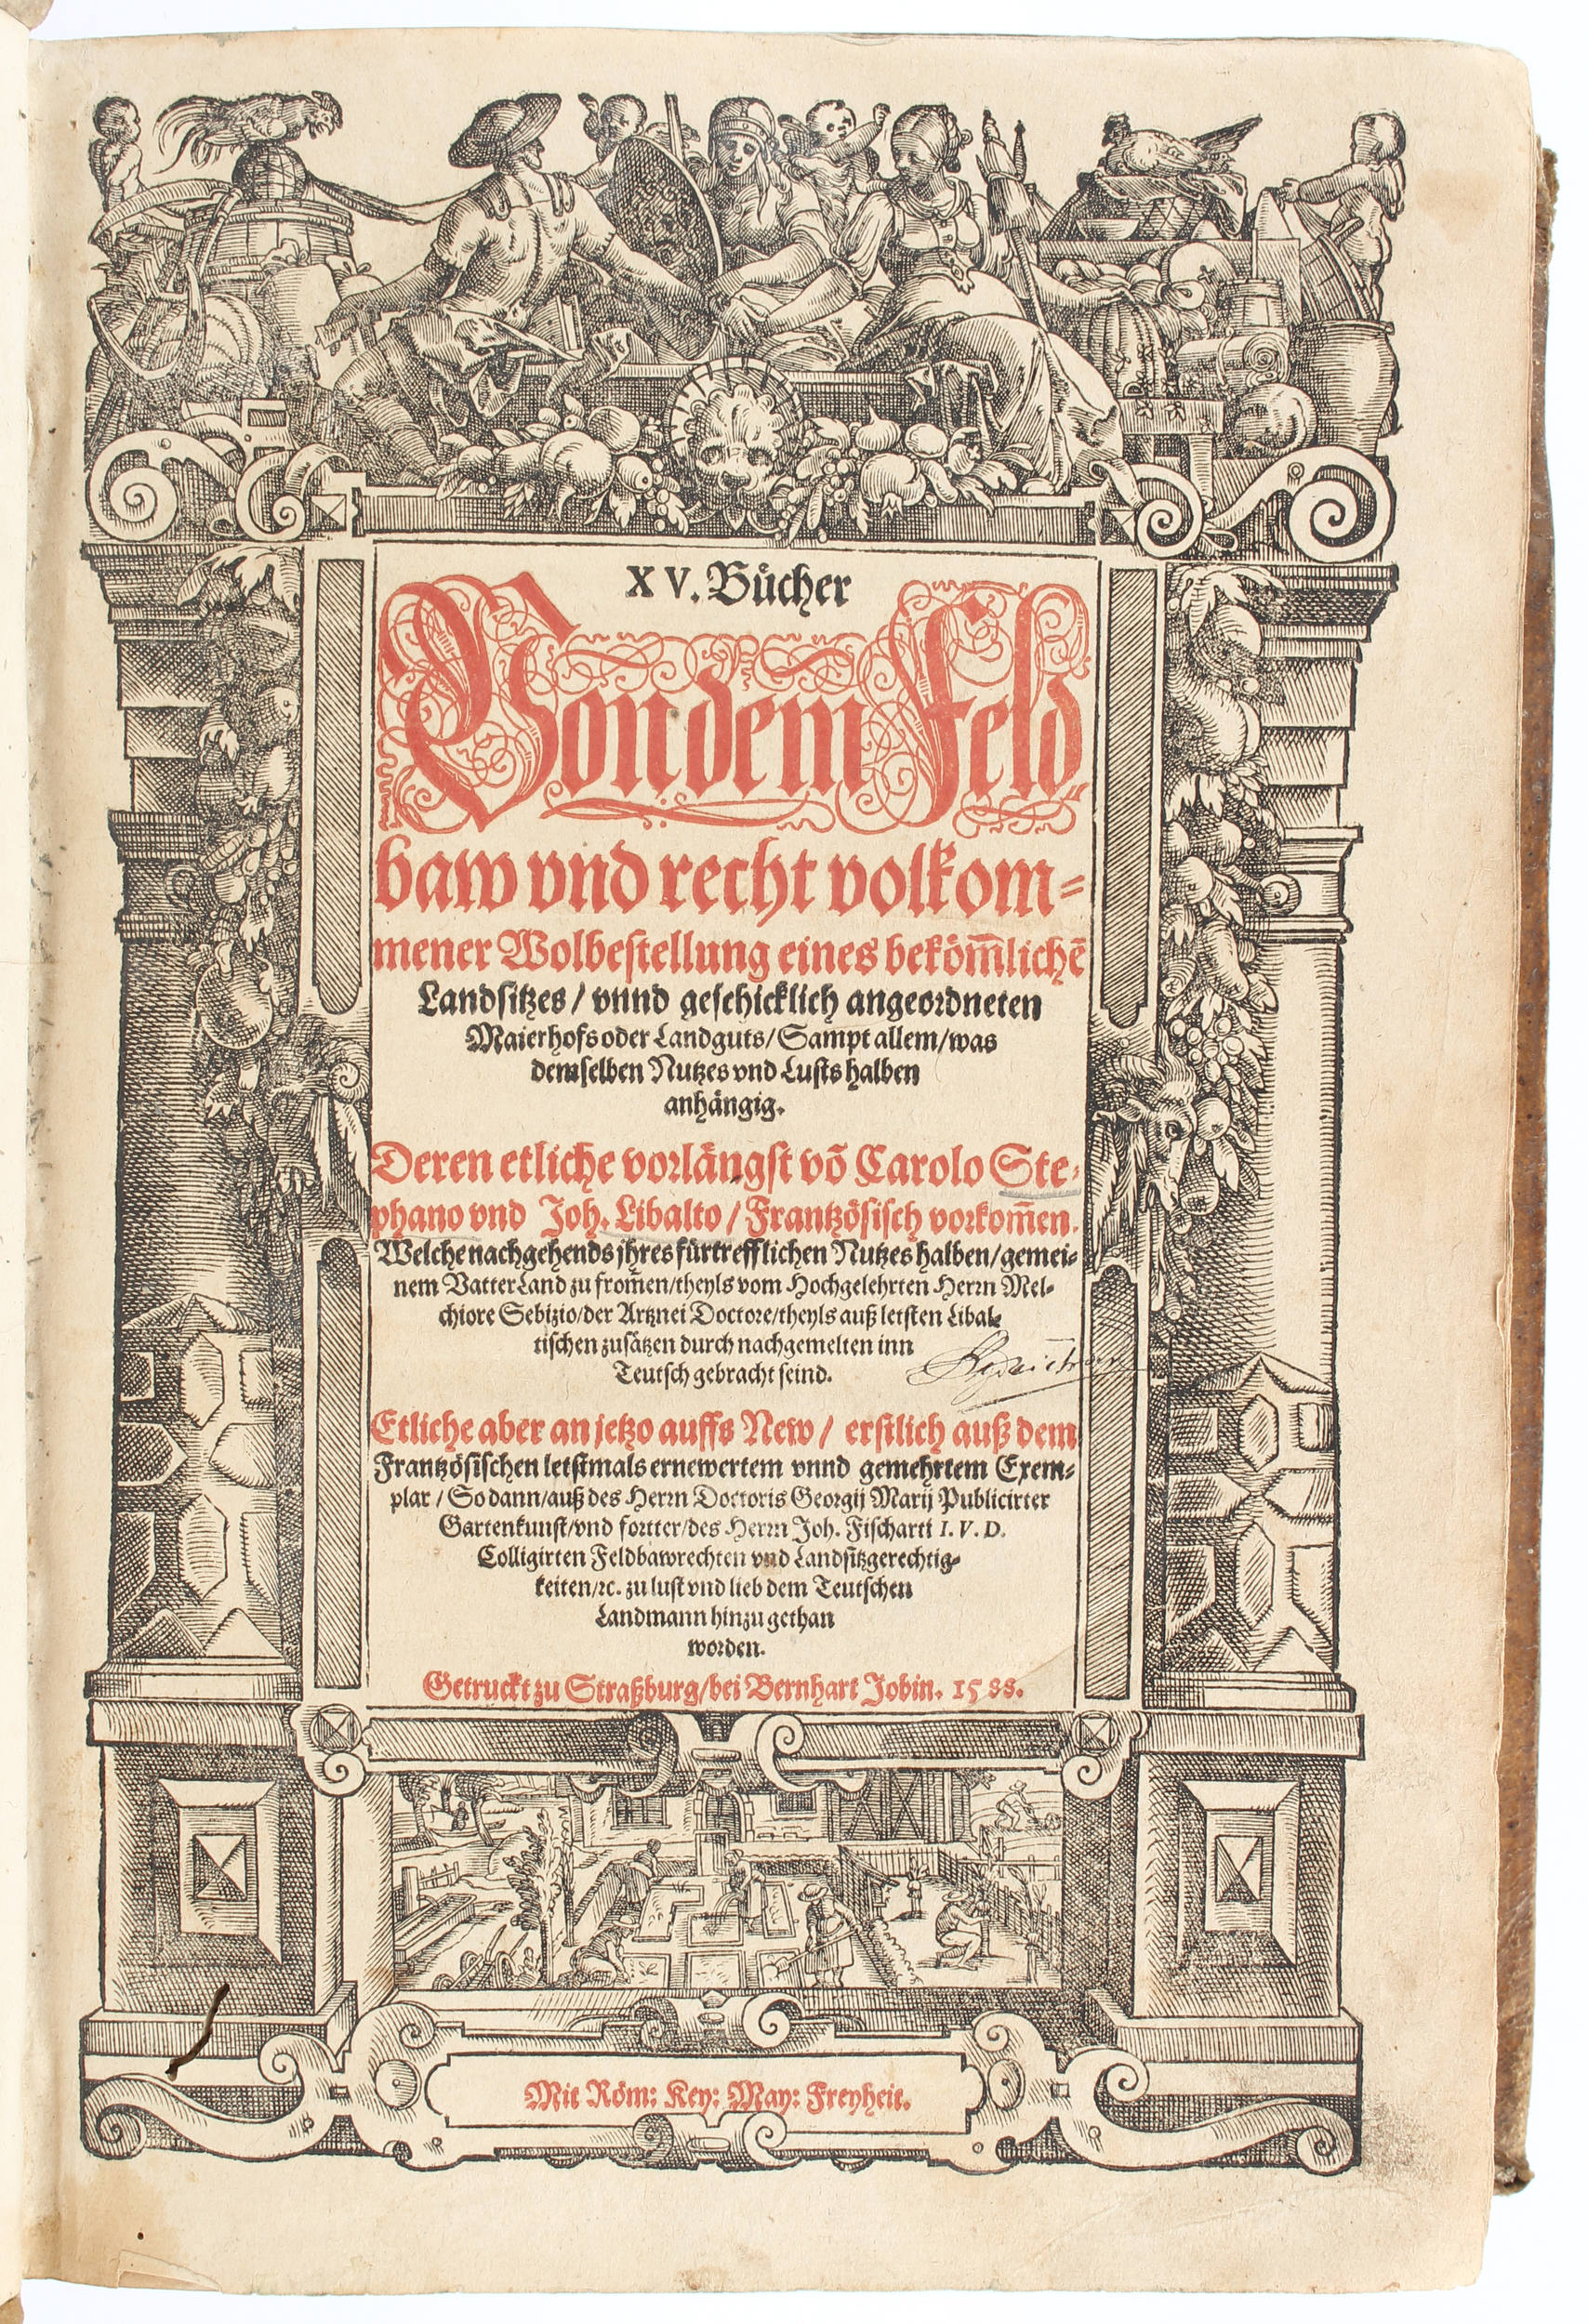 XV. Bücher
Von dem Feld
baw vnd recht volkom-
mener Wolbestellung eines bekom̄lichē
Landsitzes / vnnd geschicklich angeordneten
Maierhofs oder Landguts / Sampt allem / was
demselben Nutzes vnd Lusts halben
anhängig.
Deren etliche vorlängst võ Carolo Ste-
phano vnd Joh. Libalto / Frantzösisch vorkom̄en.
Welche nachgehends jhres fürtrefflichen Nutzes halben / gemei-
nem Vatterland zu from̄en / theyls vom Hochgelehrten Herrn Mel-
chiore Sebizio / der Artznei Doctore / theyls auß letsten Libal-
tischen zusätzen durch nachgemelten inn
Teutsch gebracht seind.
Etliche aber an jetzo auffs New / erstlich auß dem
Frantzösischen letstmals ernewertem vnnd gemehrtem Exem-
plar / So dann / auß des Herrn Doctoris Georgij Marij Publicirter
Gartenkunst / vnd fortter / des Herrn Joh. Fischarti I. V. D.
Colligirten Feldbawrechten vnd Landsitzgerechtig-
keiten / ꝛc. zu lust vnd lieb dem Teutschen
Landmann hinzu gethan
worden.
Getruckt zu Straßburg / bei Bernhart Jobin. 1588.
Mit Röm: Key: May: Freyheit.